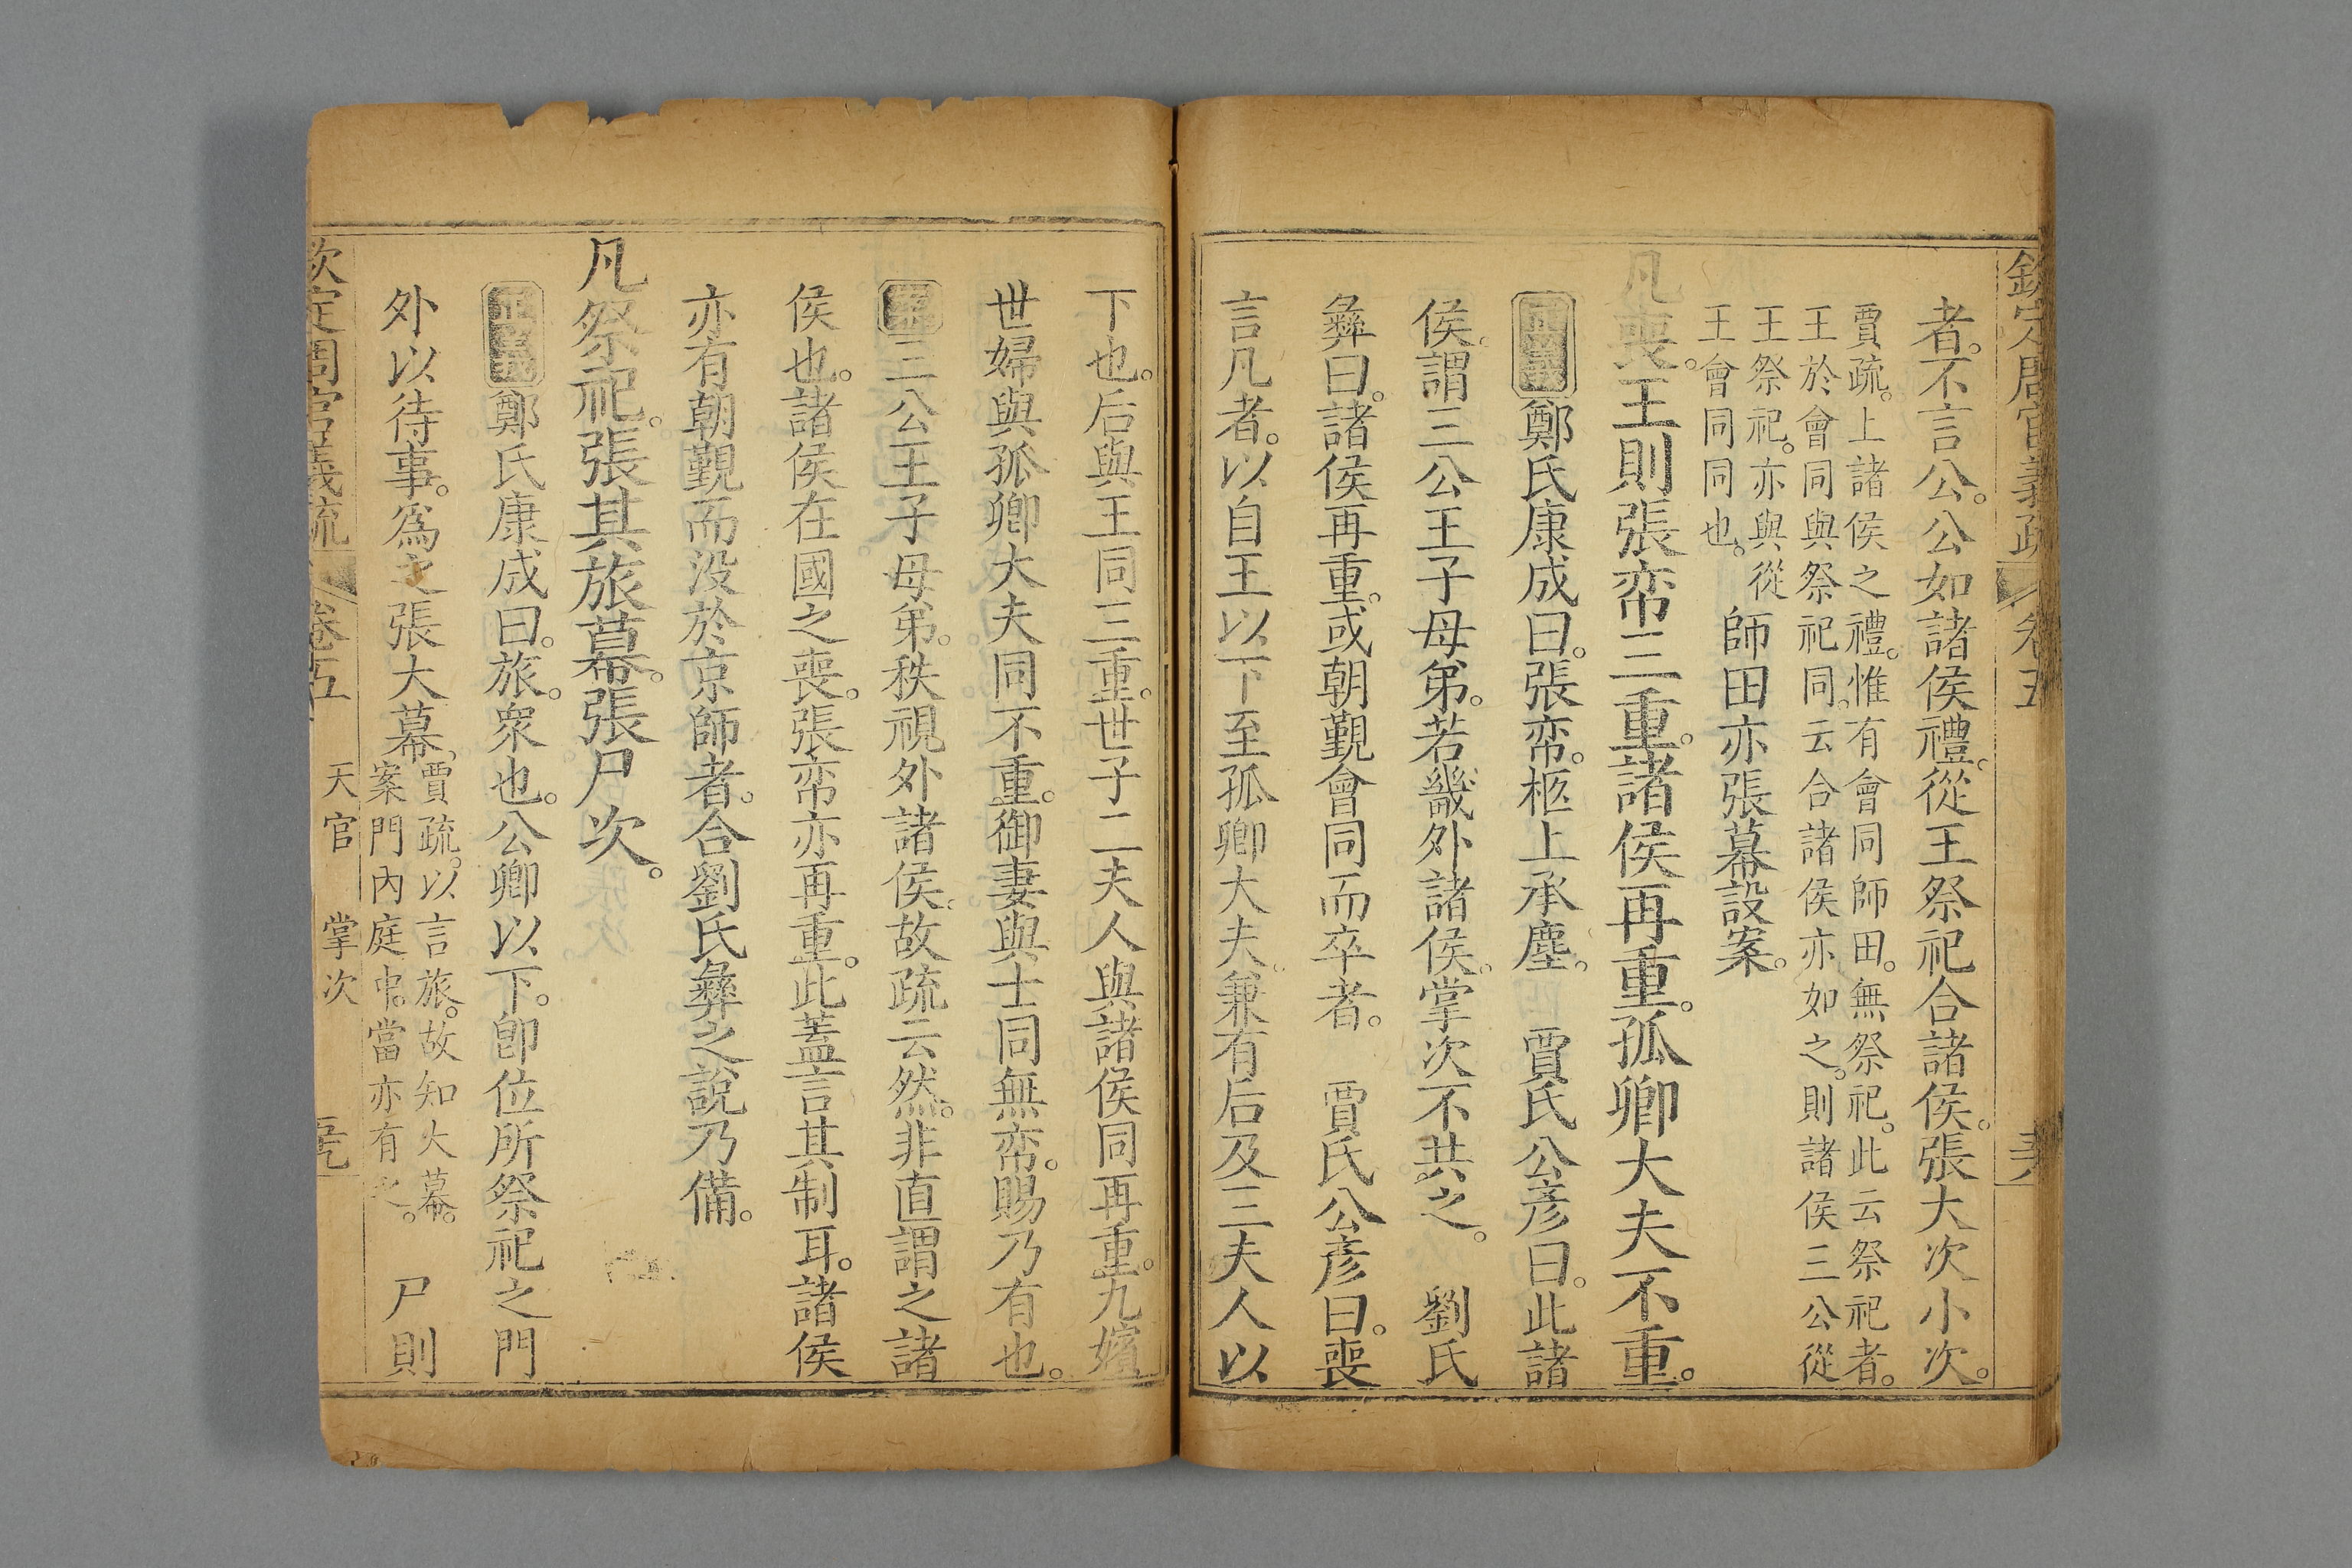 欽定周官義疏 卷五
者。不言公。公如諸侯禮。從王祭祀合諸侯。張大次小次。
賈疏。上諸侯之禮。惟有會同師田。無祭祀。此云祭祀者。
王於會同與祭祀同。云合諸侯亦如之。則諸侯三公從
王祭祀。亦與從
王會同同也。
師田亦張幕設案。
凡喪。王則張帟三重。諸侯再重。孤卿大夫不重。
正義 鄭氏康成曰。張帟。柩上承塵。 賈氏公彥曰。此諸
侯。謂三公王子母弟。若畿外諸侯。掌次不共之。 劉氏
彝曰。諸侯再重。或朝覲會同而卒者。 賈氏公彥曰。喪
言凡者。以自王以下至孤卿大夫。兼有后及三夫人以
下也。后與王同三重。世子二夫人與諸侯同再重。九嬪
世婦與孤卿大夫同不重。御妻與士同無帟。賜乃有也。
三公王子母弟。秩視外諸侯。故疏云然。非直謂之諸
侯也。諸侯在國之喪。張帟亦再重。此蓋言其制耳。諸侯
亦有朝覲而沒於京師者。合劉氏彝之說乃備。
凡祭祀。張其旅幕。張尸次。
正義 鄭氏康成曰。旅。衆也。公卿以下。卽位所祭祀之門
外以待事。爲之張大幕。
賈疏。以言旅。故知大幕。
案門內庭中。當亦有之。
尸則
欽定周官義疏 卷五 天官 掌次